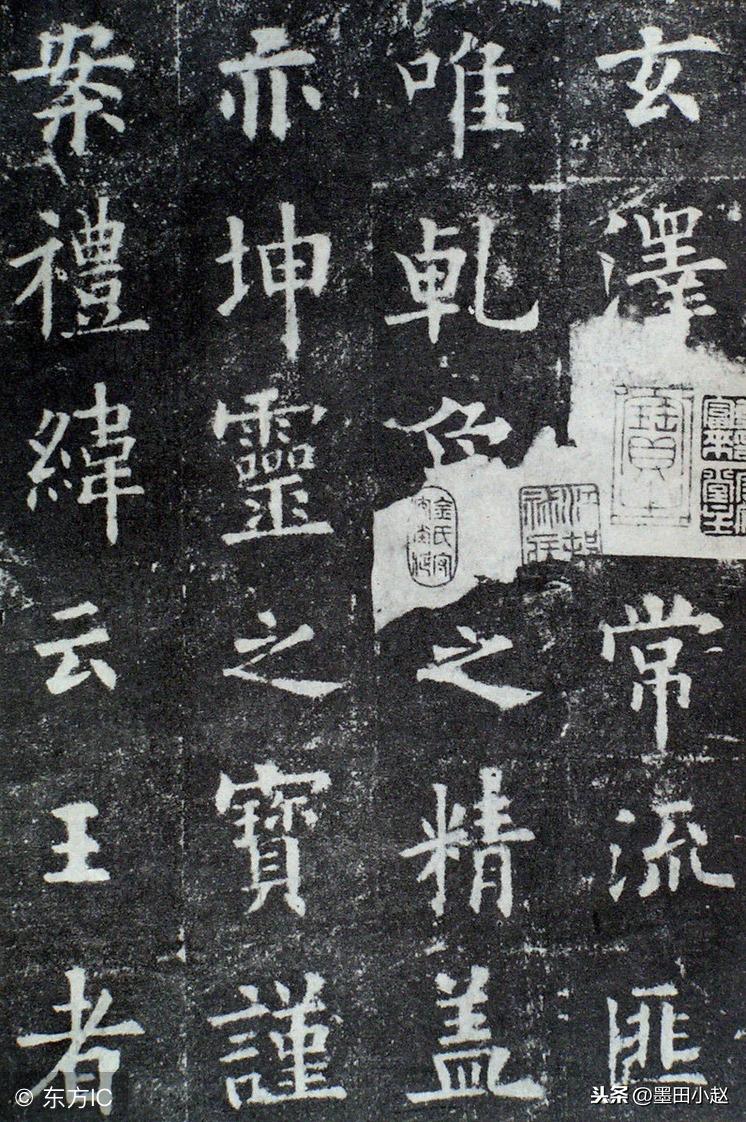 玄澤常流匪
唯乹之精盖
亦坤靈之寶謹
案禮緯云王者
金氏
© 东方IC
头条 @墨田小赵